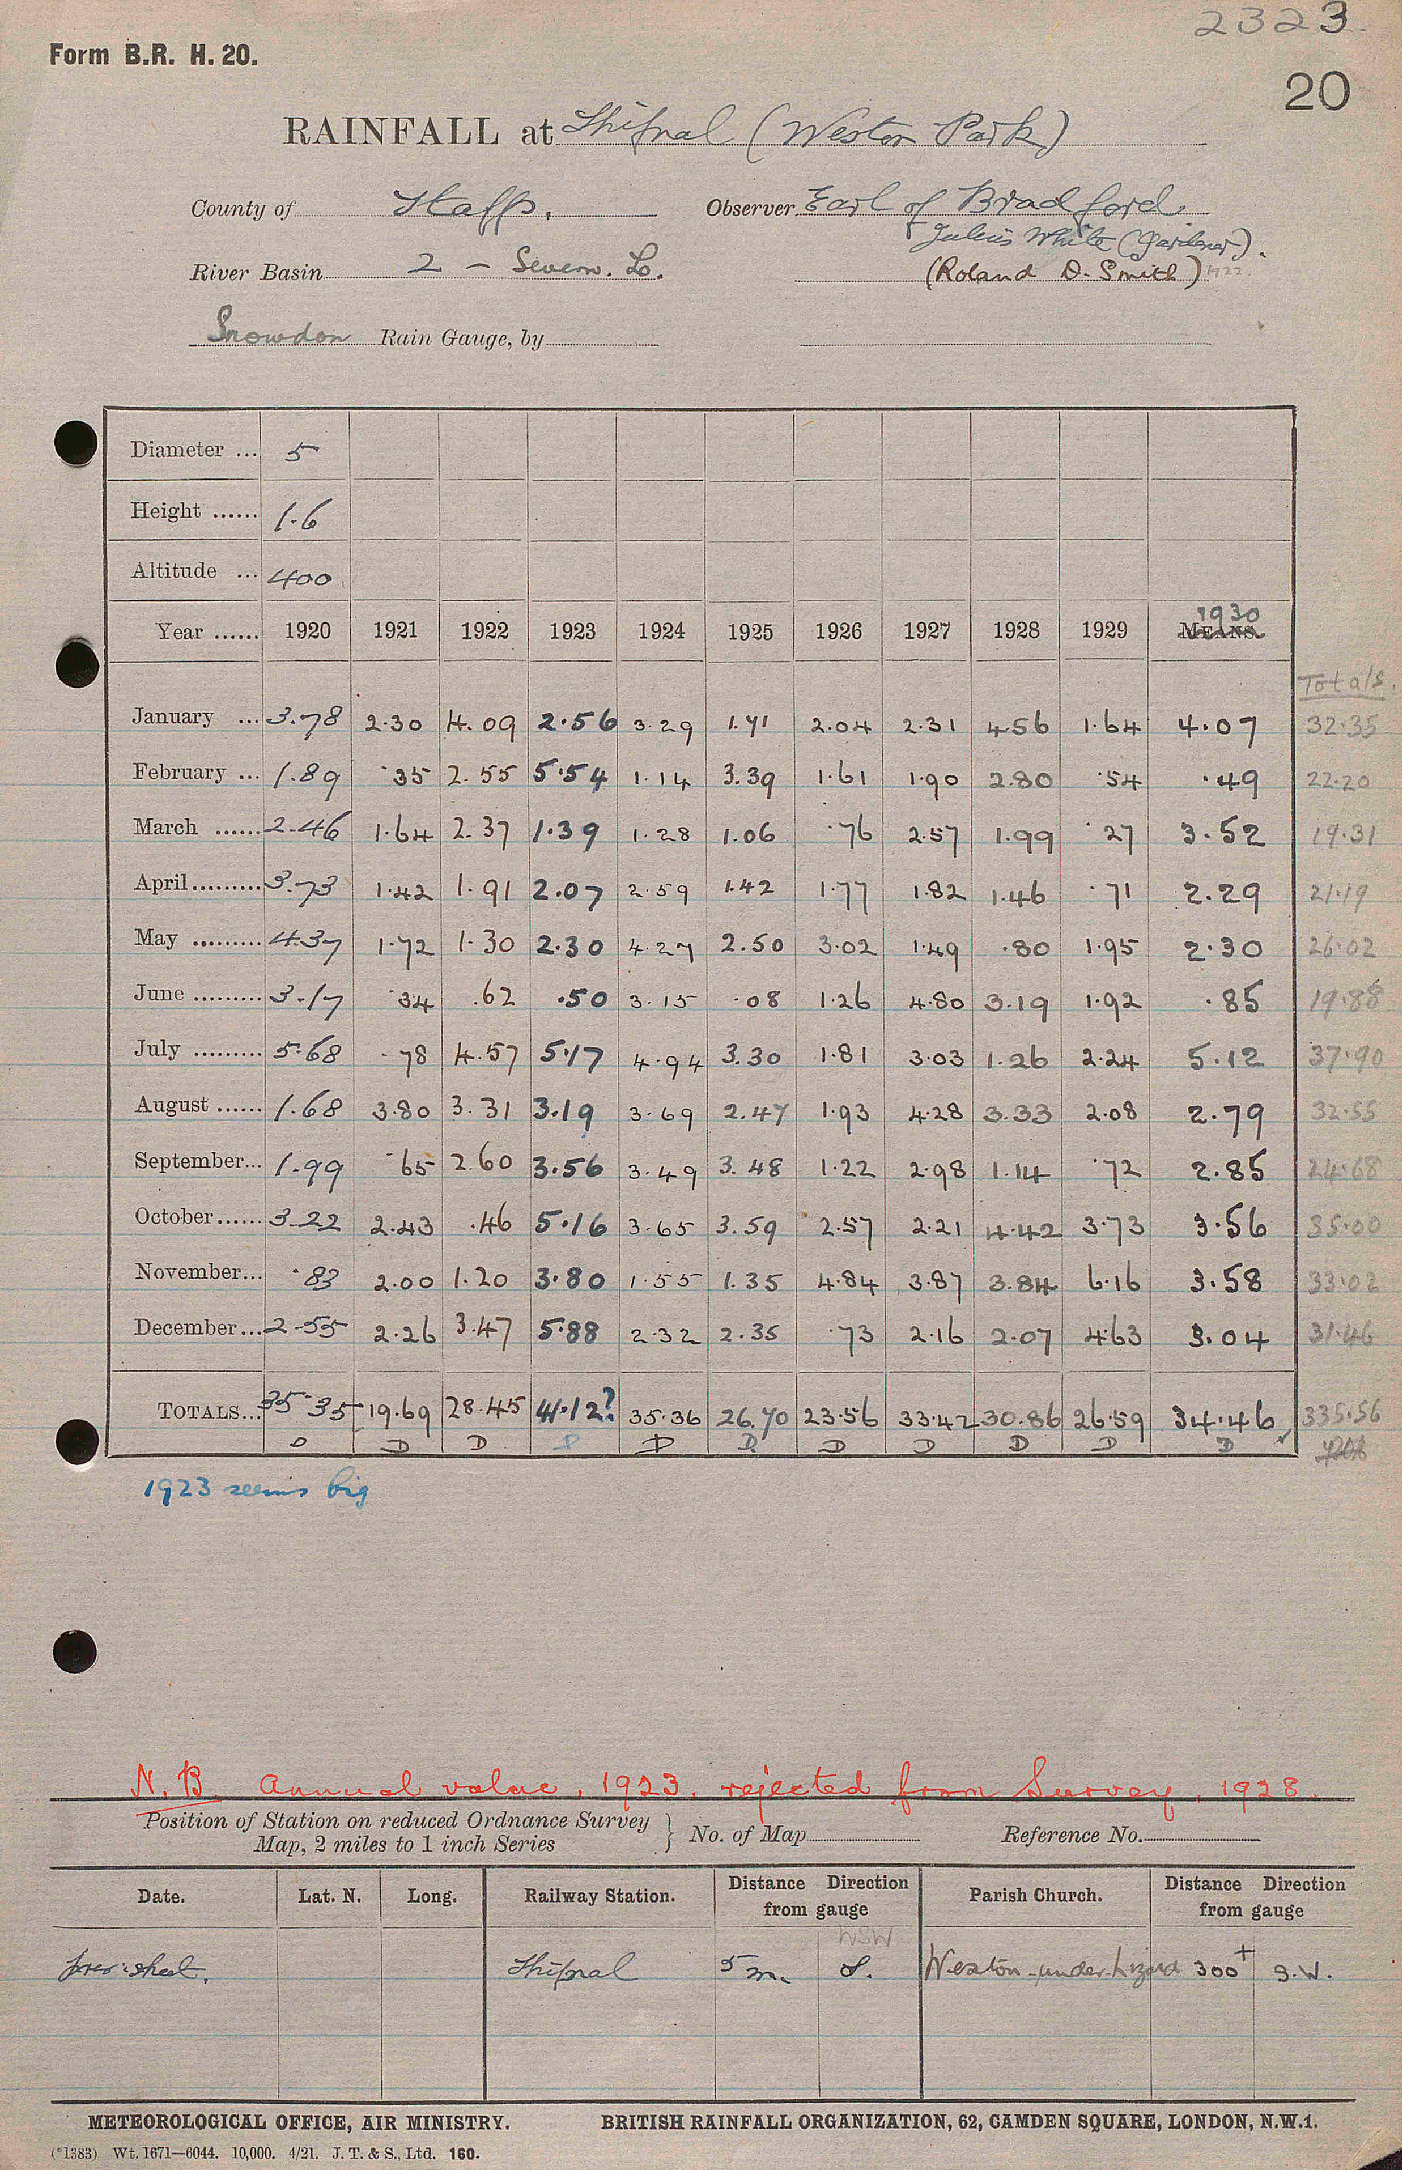 2323
Form B.R. H. 20.
20
RAINFALL at Shifnal (Weston Park)
County of Staffs. Observer Earl of Bradford
Julius White (Gardener).
River Basin 2 - Severn. Lo. (Roland D. Smith) 1922.
Snowdon Rain Gauge, by
Diameter ... 5
Height ...... 1.6
Altitude ... 400
1930
Year ...... 1920 1921 1922 1923 1924 1925 1926 1927 1928 1929 MEANS.
Totals.
January ... 3.78 2.30 4.09 2.56 3.29 1.71 2.04 2.31 4.56 1.64 4.07 32.35
February ... 1.89 .35 2.55 5.54 1.14 3.39 1.61 1.90 2.80 .54 .49 22.20
March ...... 2.46 1.64 2.37 1.39 1.28 1.06 .76 2.57 1.99 .27 3.52 19.31
April ......... 3.73 1.42 1.91 2.07 2.59 1.42 1.77 1.82 1.46 .71 2.29 21.19
May ......... 4.37 1.72 1.30 2.30 4.27 2.50 3.02 1.49 .80 1.95 2.30 26.02
June ......... 3.17 .34 .62 .50 3.15 .08 1.26 4.80 3.19 1.92 .85 19.88
July ......... 5.68 .78 4.57 5.17 4.94 3.30 1.81 3.03 1.26 2.24 5.12 37.90
August ...... 1.68 3.80 3.31 3.19 3.69 2.47 1.93 4.28 3.33 2.08 2.79 32.55
September... 1.99 .65 2.60 3.56 3.49 3.48 1.22 2.98 1.14 .72 2.85 24.68
October ...... 3.22 2.43 .46 5.16 3.65 3.59 2.57 2.21 4.42 3.73 3.56 35.00
November... .83 2.00 1.20 3.80 1.55 1.35 4.84 3.87 3.84 6.16 3.58 33.02
December... 2.55 2.26 3.47 5.88 2.32 2.35 .73 2.16 2.07 4.63 3.04 31.46
TOTALS... 35.35 19.69 28.45 41.12? 35.36 26.70 23.56 33.42 30.86 26.59 34.46 335.56
D D D D D D D D D D D
1923 seems big
N.B. Annual value, 1923, rejected from Survey, 1928.
Position of Station on reduced Ordnance Survey
Map, 2 miles to 1 inch Series } No. of Map Reference No.
Date. Lat. N. Long. Railway Station. Distance Direction from gauge Parish Church. Distance Direction from gauge
WSW
prev: sheet. Shifnal 5 m. S. Weston-under-Lizard 300+ S.W.
METEOROLOGICAL OFFICE, AIR MINISTRY. BRITISH RAINFALL ORGANIZATION, 62, CAMDEN SQUARE, LONDON, N.W.1.
(*1383) Wt. 1671—6044. 10,000. 4/21. J. T. & S., Ltd. 160.